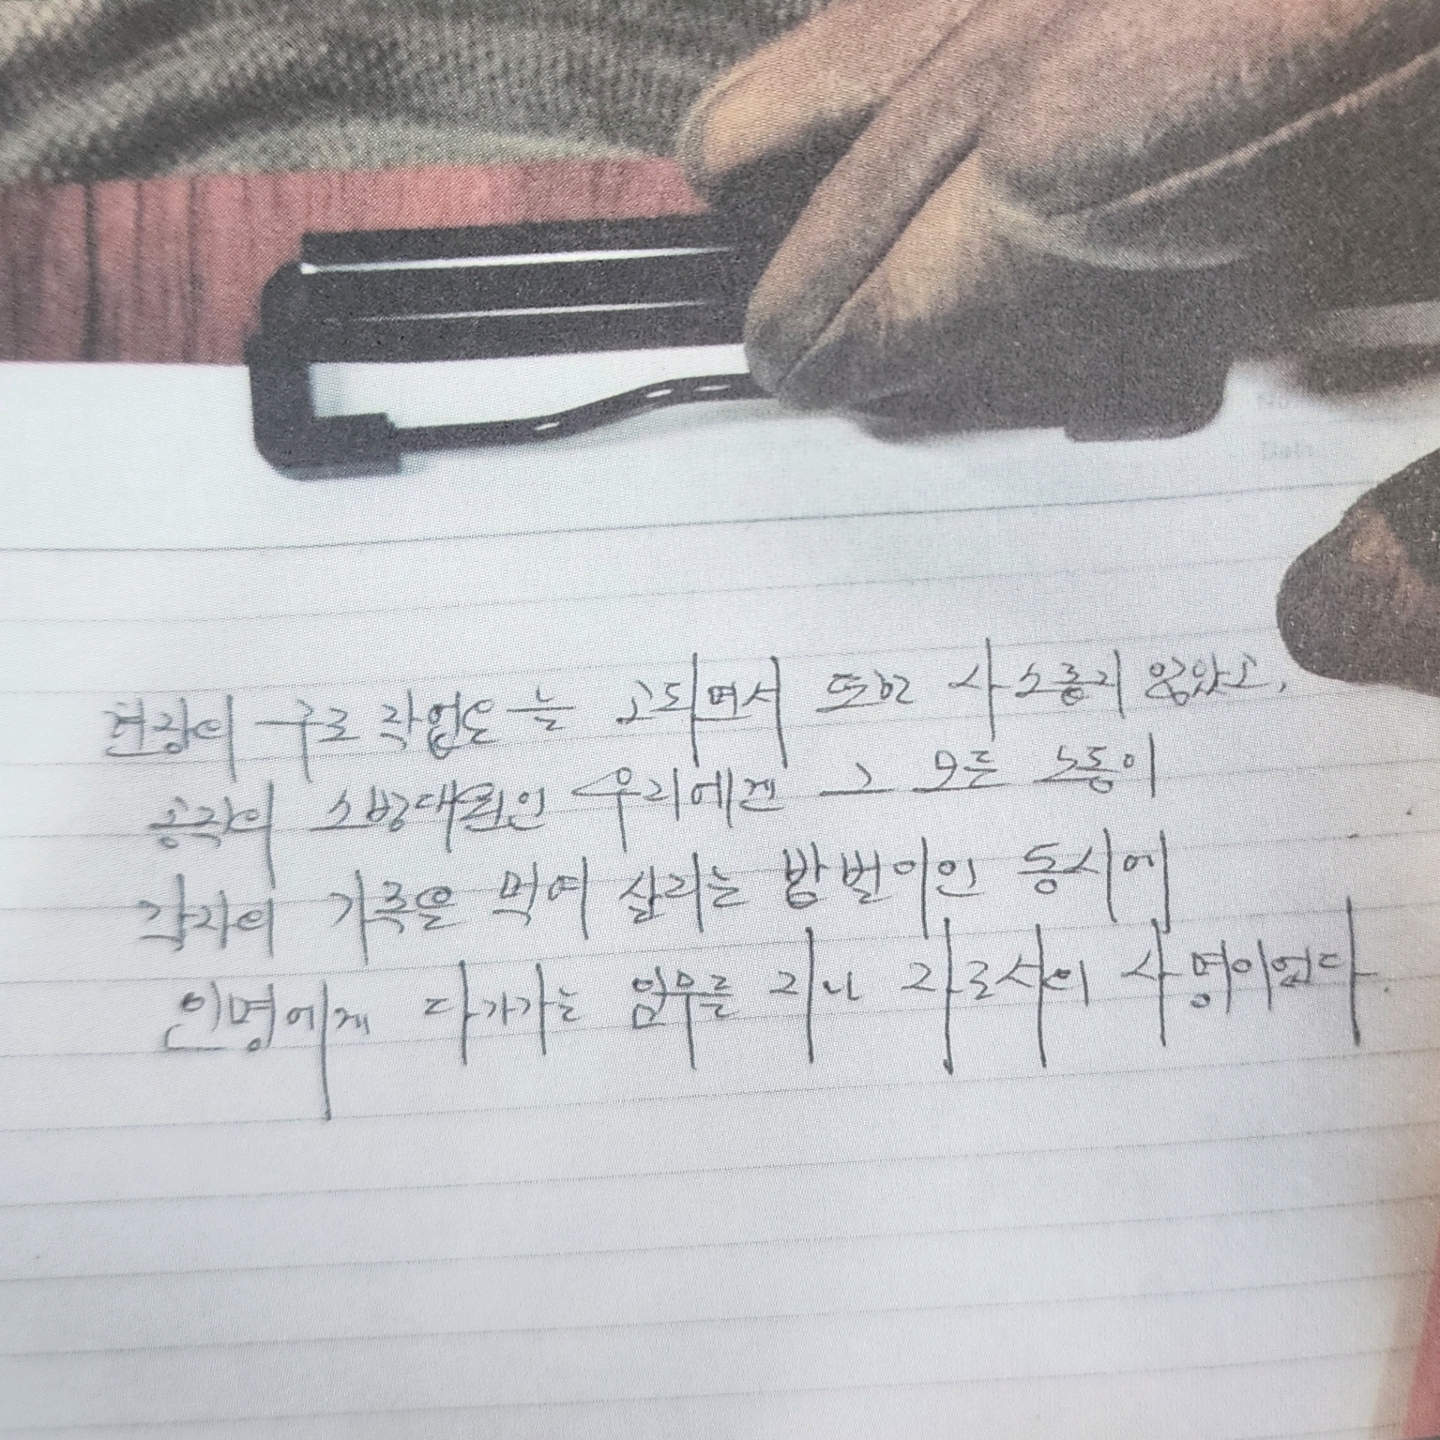 현장의 구조 작업은 늘 고되면서 또한 사소롭지 않았고,
공작의 소방대원인 우리에겐 그 모든 노동이
각자의 가족을 먹여 살리는 방법이인 동시에
인명에게 다가가는 임무를 지닌 자로서의 사명이었다.